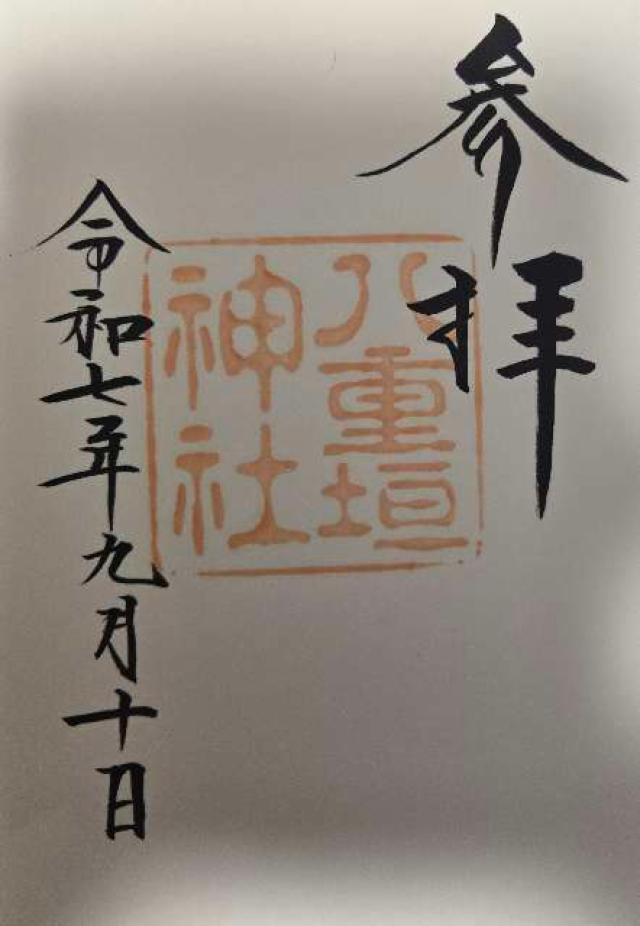 参拝
八重垣
神社
令和七年九月十日